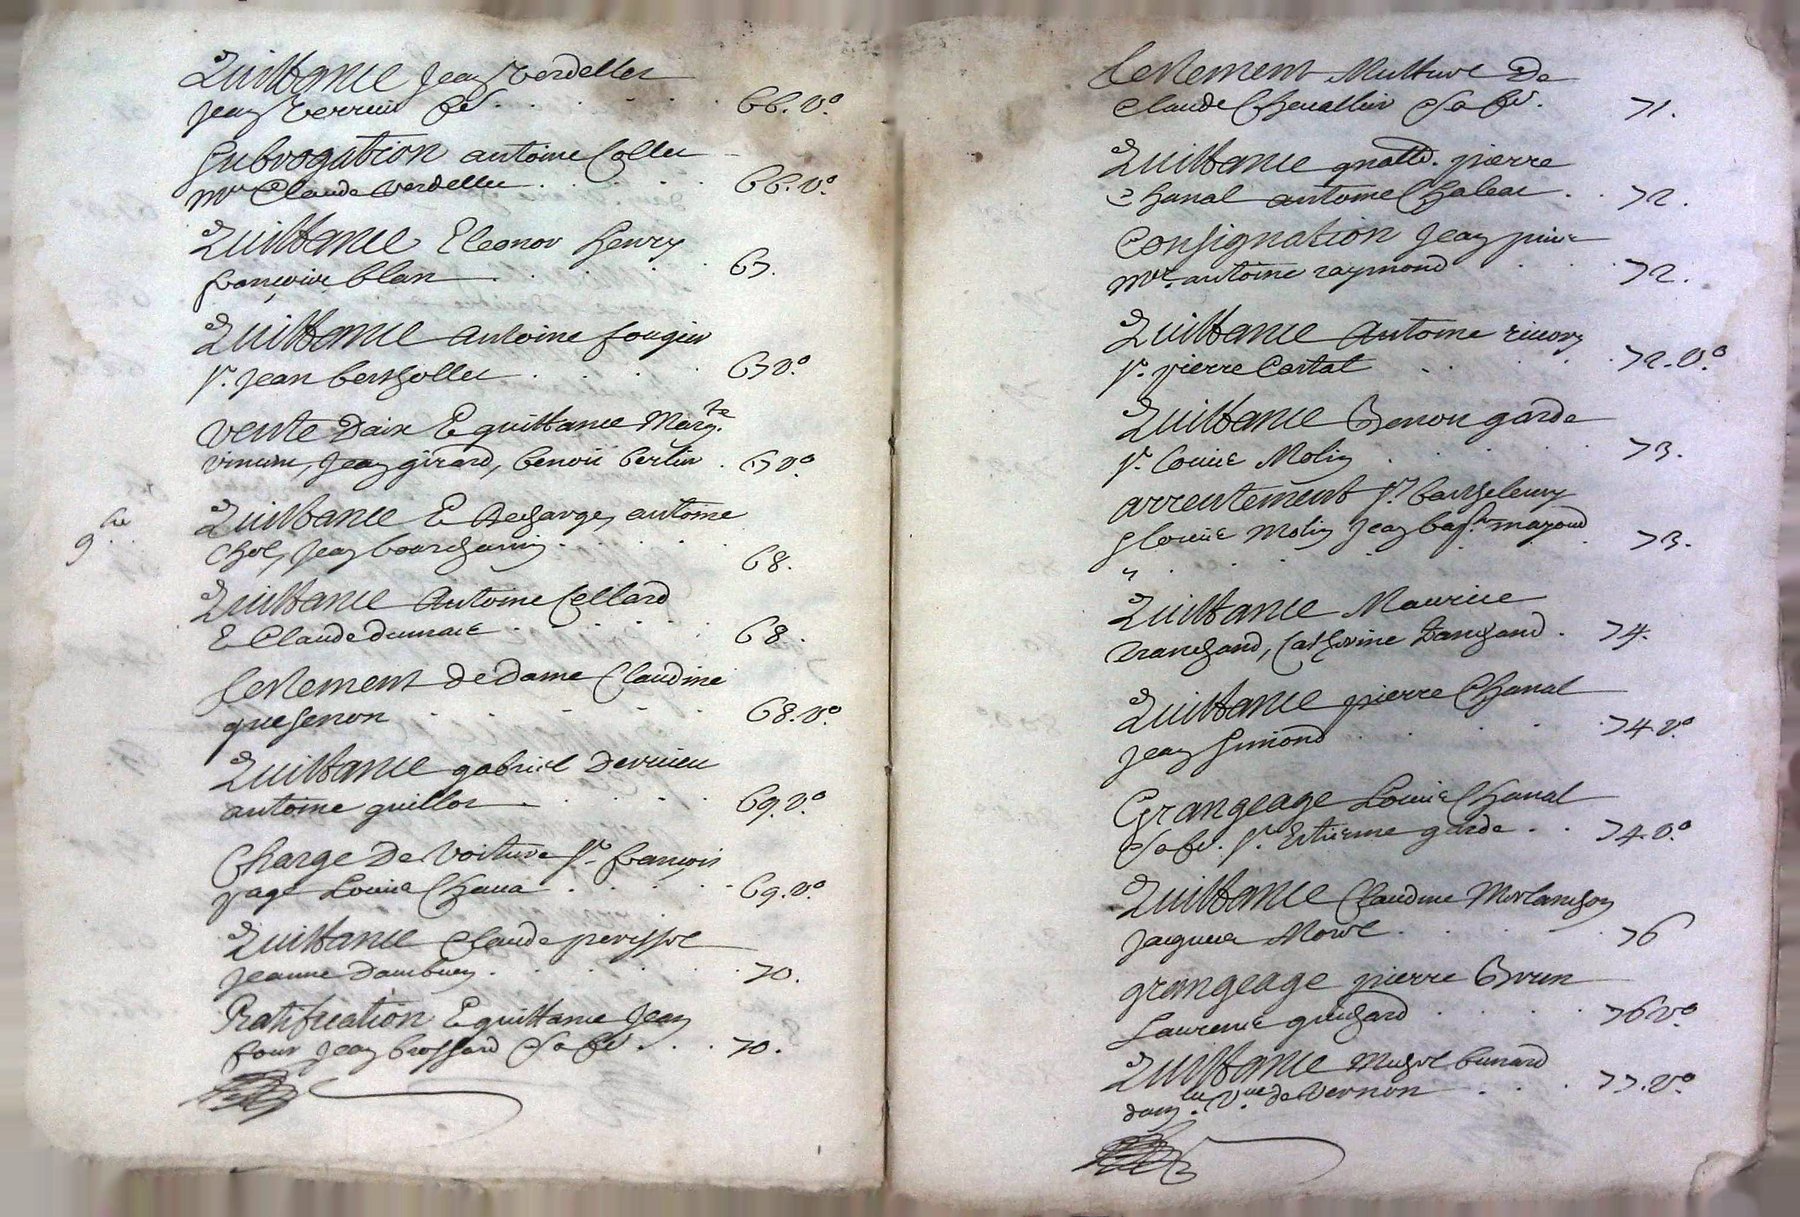 Quittance Jean Verdellet
Jean Verruil fils . . . . 66. vo.
Subrogation antoine Collet
Mre Claude Verdellet . . . . 66. vo.
Quittance Eleonor henry
françoise blan . . . . 67.
Quittance antoine fougier
Sr. jean bertholler . . . . 67 vo.
Vente Daix E quittance Marg.te
Jean girard, benoit bertin . 67 vo
Quittance E decharge, antoine
Chol, Jean bourchanin . . 68.
Quittance Antoine Cellard
E Claude dumare . . . . 68.
testement de dame Claudine
quesenon . . . . 68. vo.
Quittance gabriel Dervieu
antoine guillot . . . . 69. vo.
Charge de Voiture Sr. françois
page Louise Chana . . . . 69. vo
Quittance Claude perissol
jeanne dambuen . . . . 70.
Ratification E quittance Jean
four Jean brossard . . . 70.
testement Mutture De
Claude Chevallier Sa fe. 71.
Quittance gnalle. pierre
Chanal antoine Chaleat . . 72.
Consignation Jean
Mre. antoine raymond . . . 72.
Quittance Antoine
Sr. pierre Cartal . . . . 72. vo
Quittance Benoit garde
Sr. Louise Molin . . . . 73.
arrentement Sr. barthelemy
Louise Molin Jean bapt. mazoud . 73.
Quittance Maurice
Tranchand, Catherine Danchand . 74.
Quittance pierre Chanal
jean Simond . . . . 74 vo
Grangeage Louise Chanal
Sa fe. Sr. Estienne garde . . 74. vo
Quittance Claudine Morlanchon
jacques Morel . . . . 76
grangeage pierre Brun
Laurence guichard . . . . 76 vo
Quittance Michel bunard
de Vernon . . . 77. vo